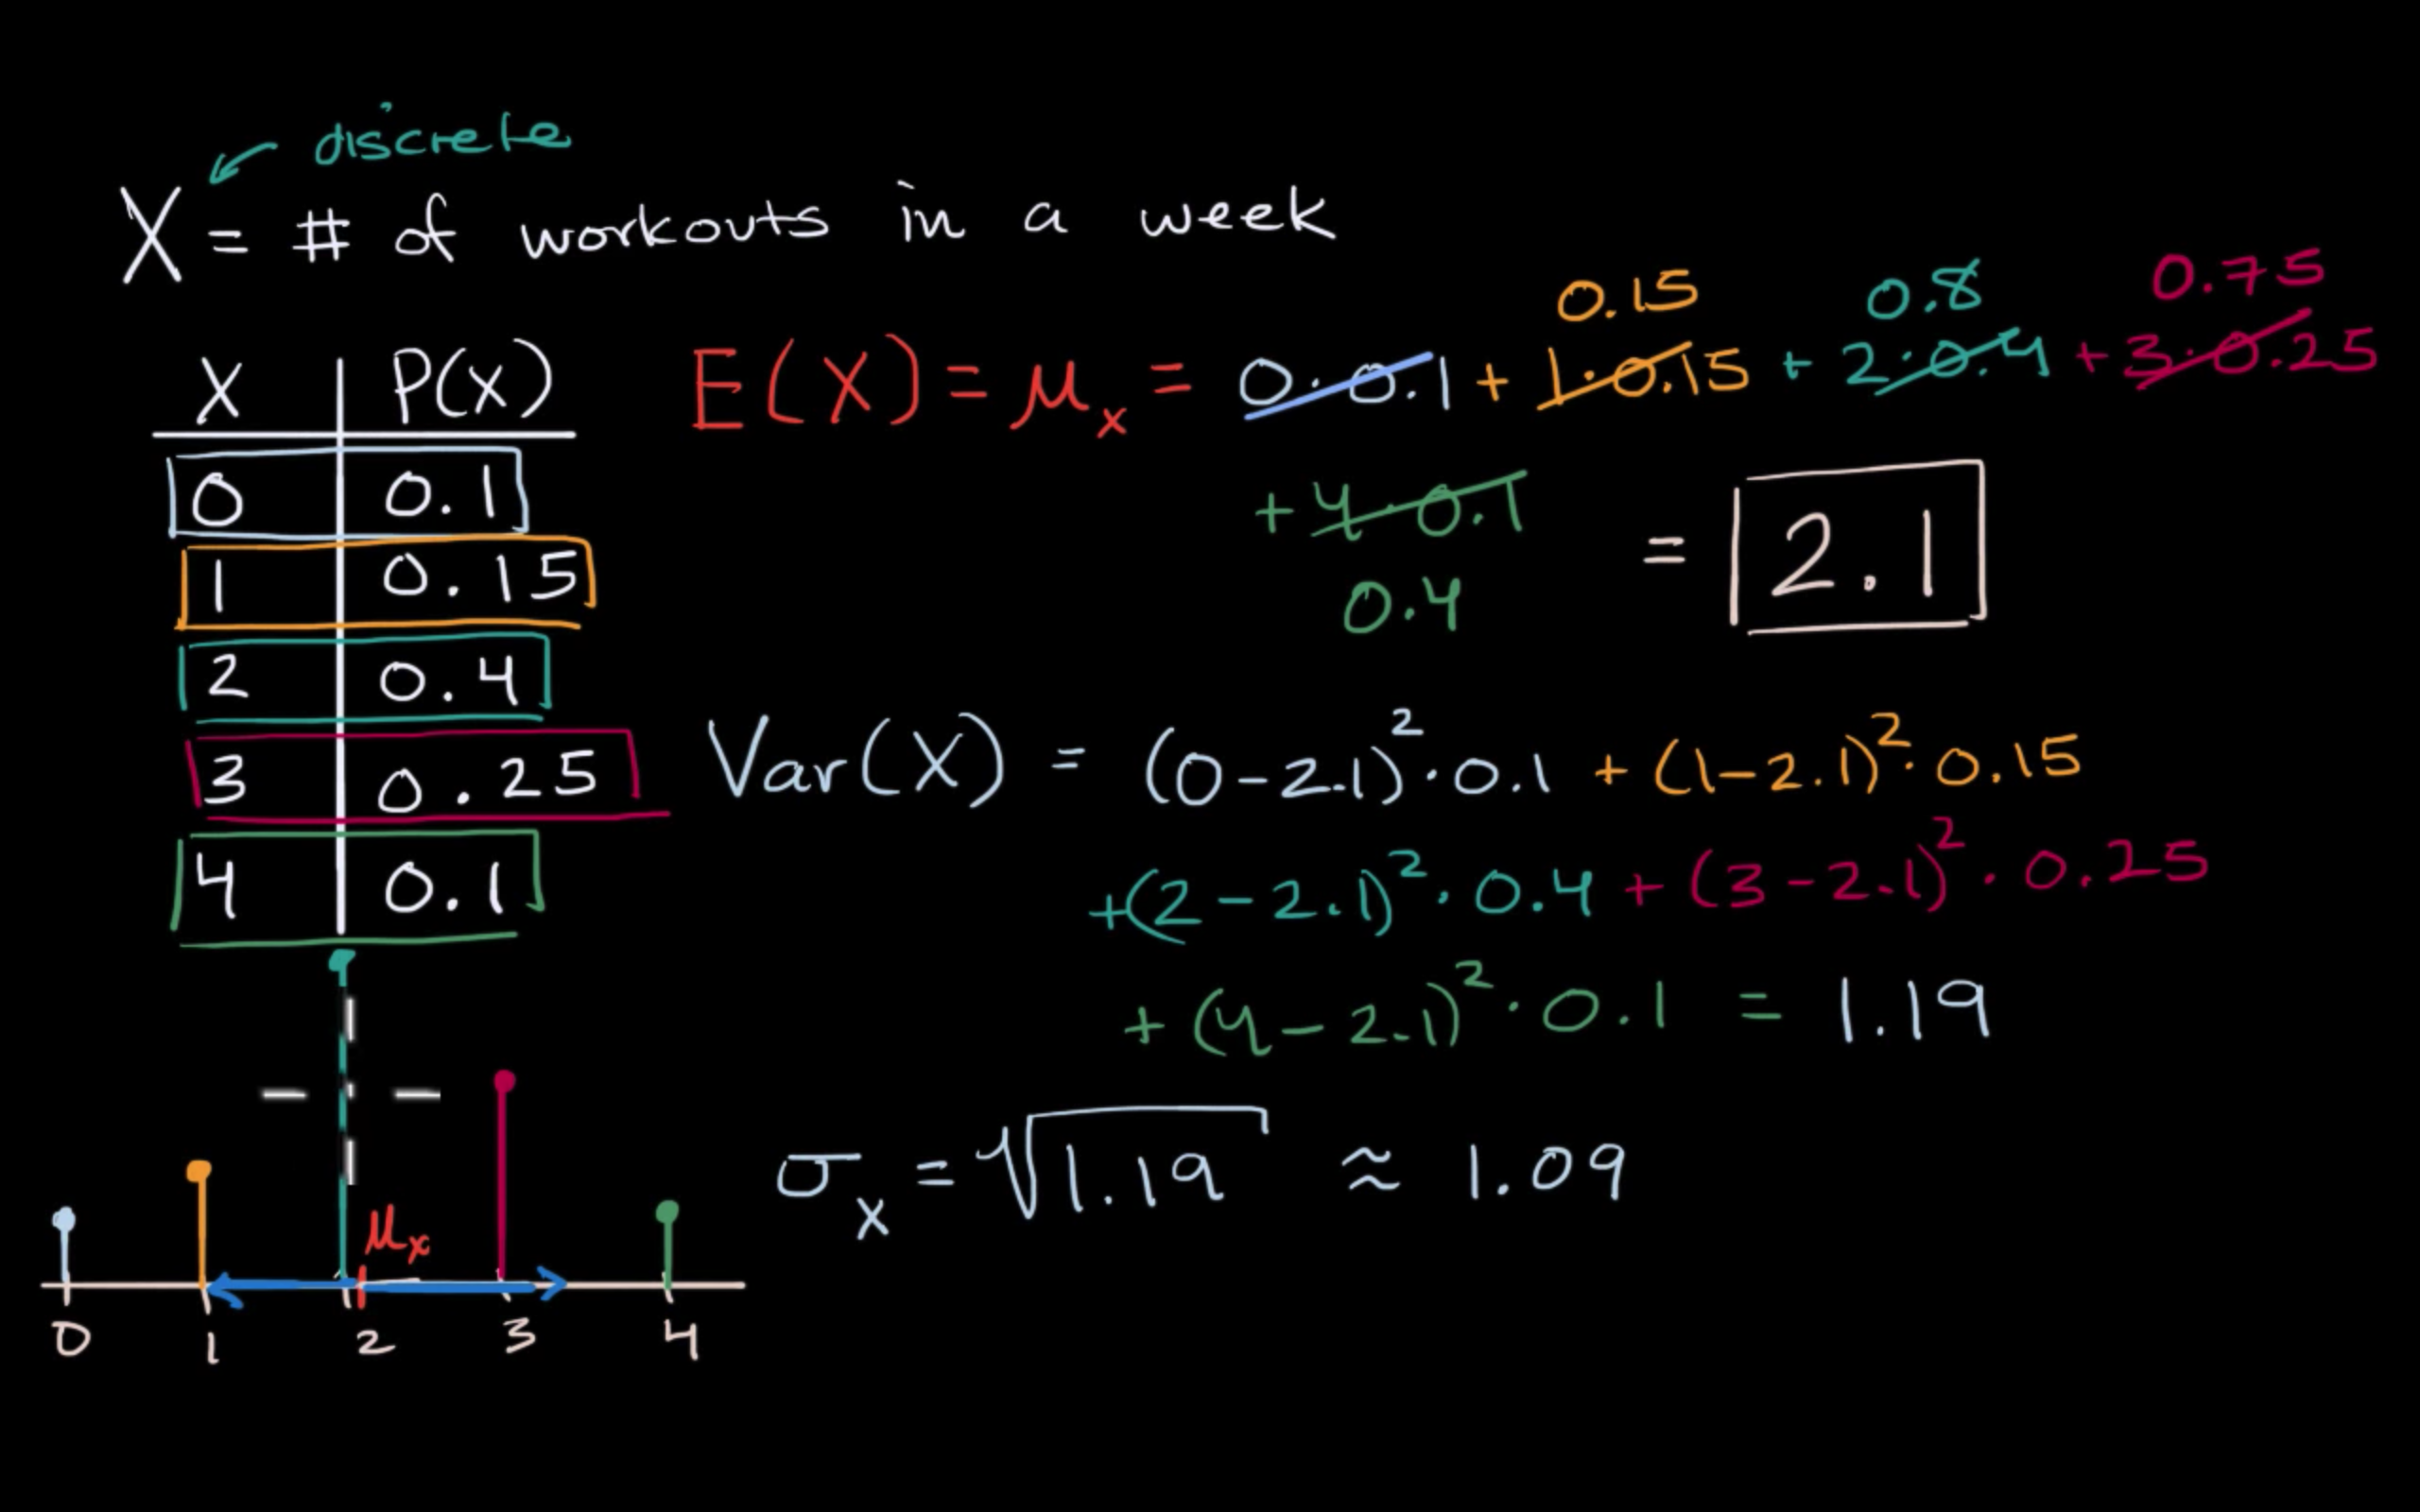 discrete
X = # of workouts in a week
X P(X)
0 0.1
1 0.15
2 0.4
3 0.25
4 0.1
0.15 0.8 0.75
E(X) = μx = 0·0.1 + 1·0.15 + 2·0.4 + 3·0.25
+ 4·0.1
0.4
= 2.1
Var(X) = (0-2.1)²·0.1 + (1-2.1)²·0.15
+(2-2.1)²·0.4 + (3-2.1)²·0.25
+(4-2.1)²·0.1 = 1.19
σx = √1.19 ≈ 1.09
μx
0 1 2 3 4